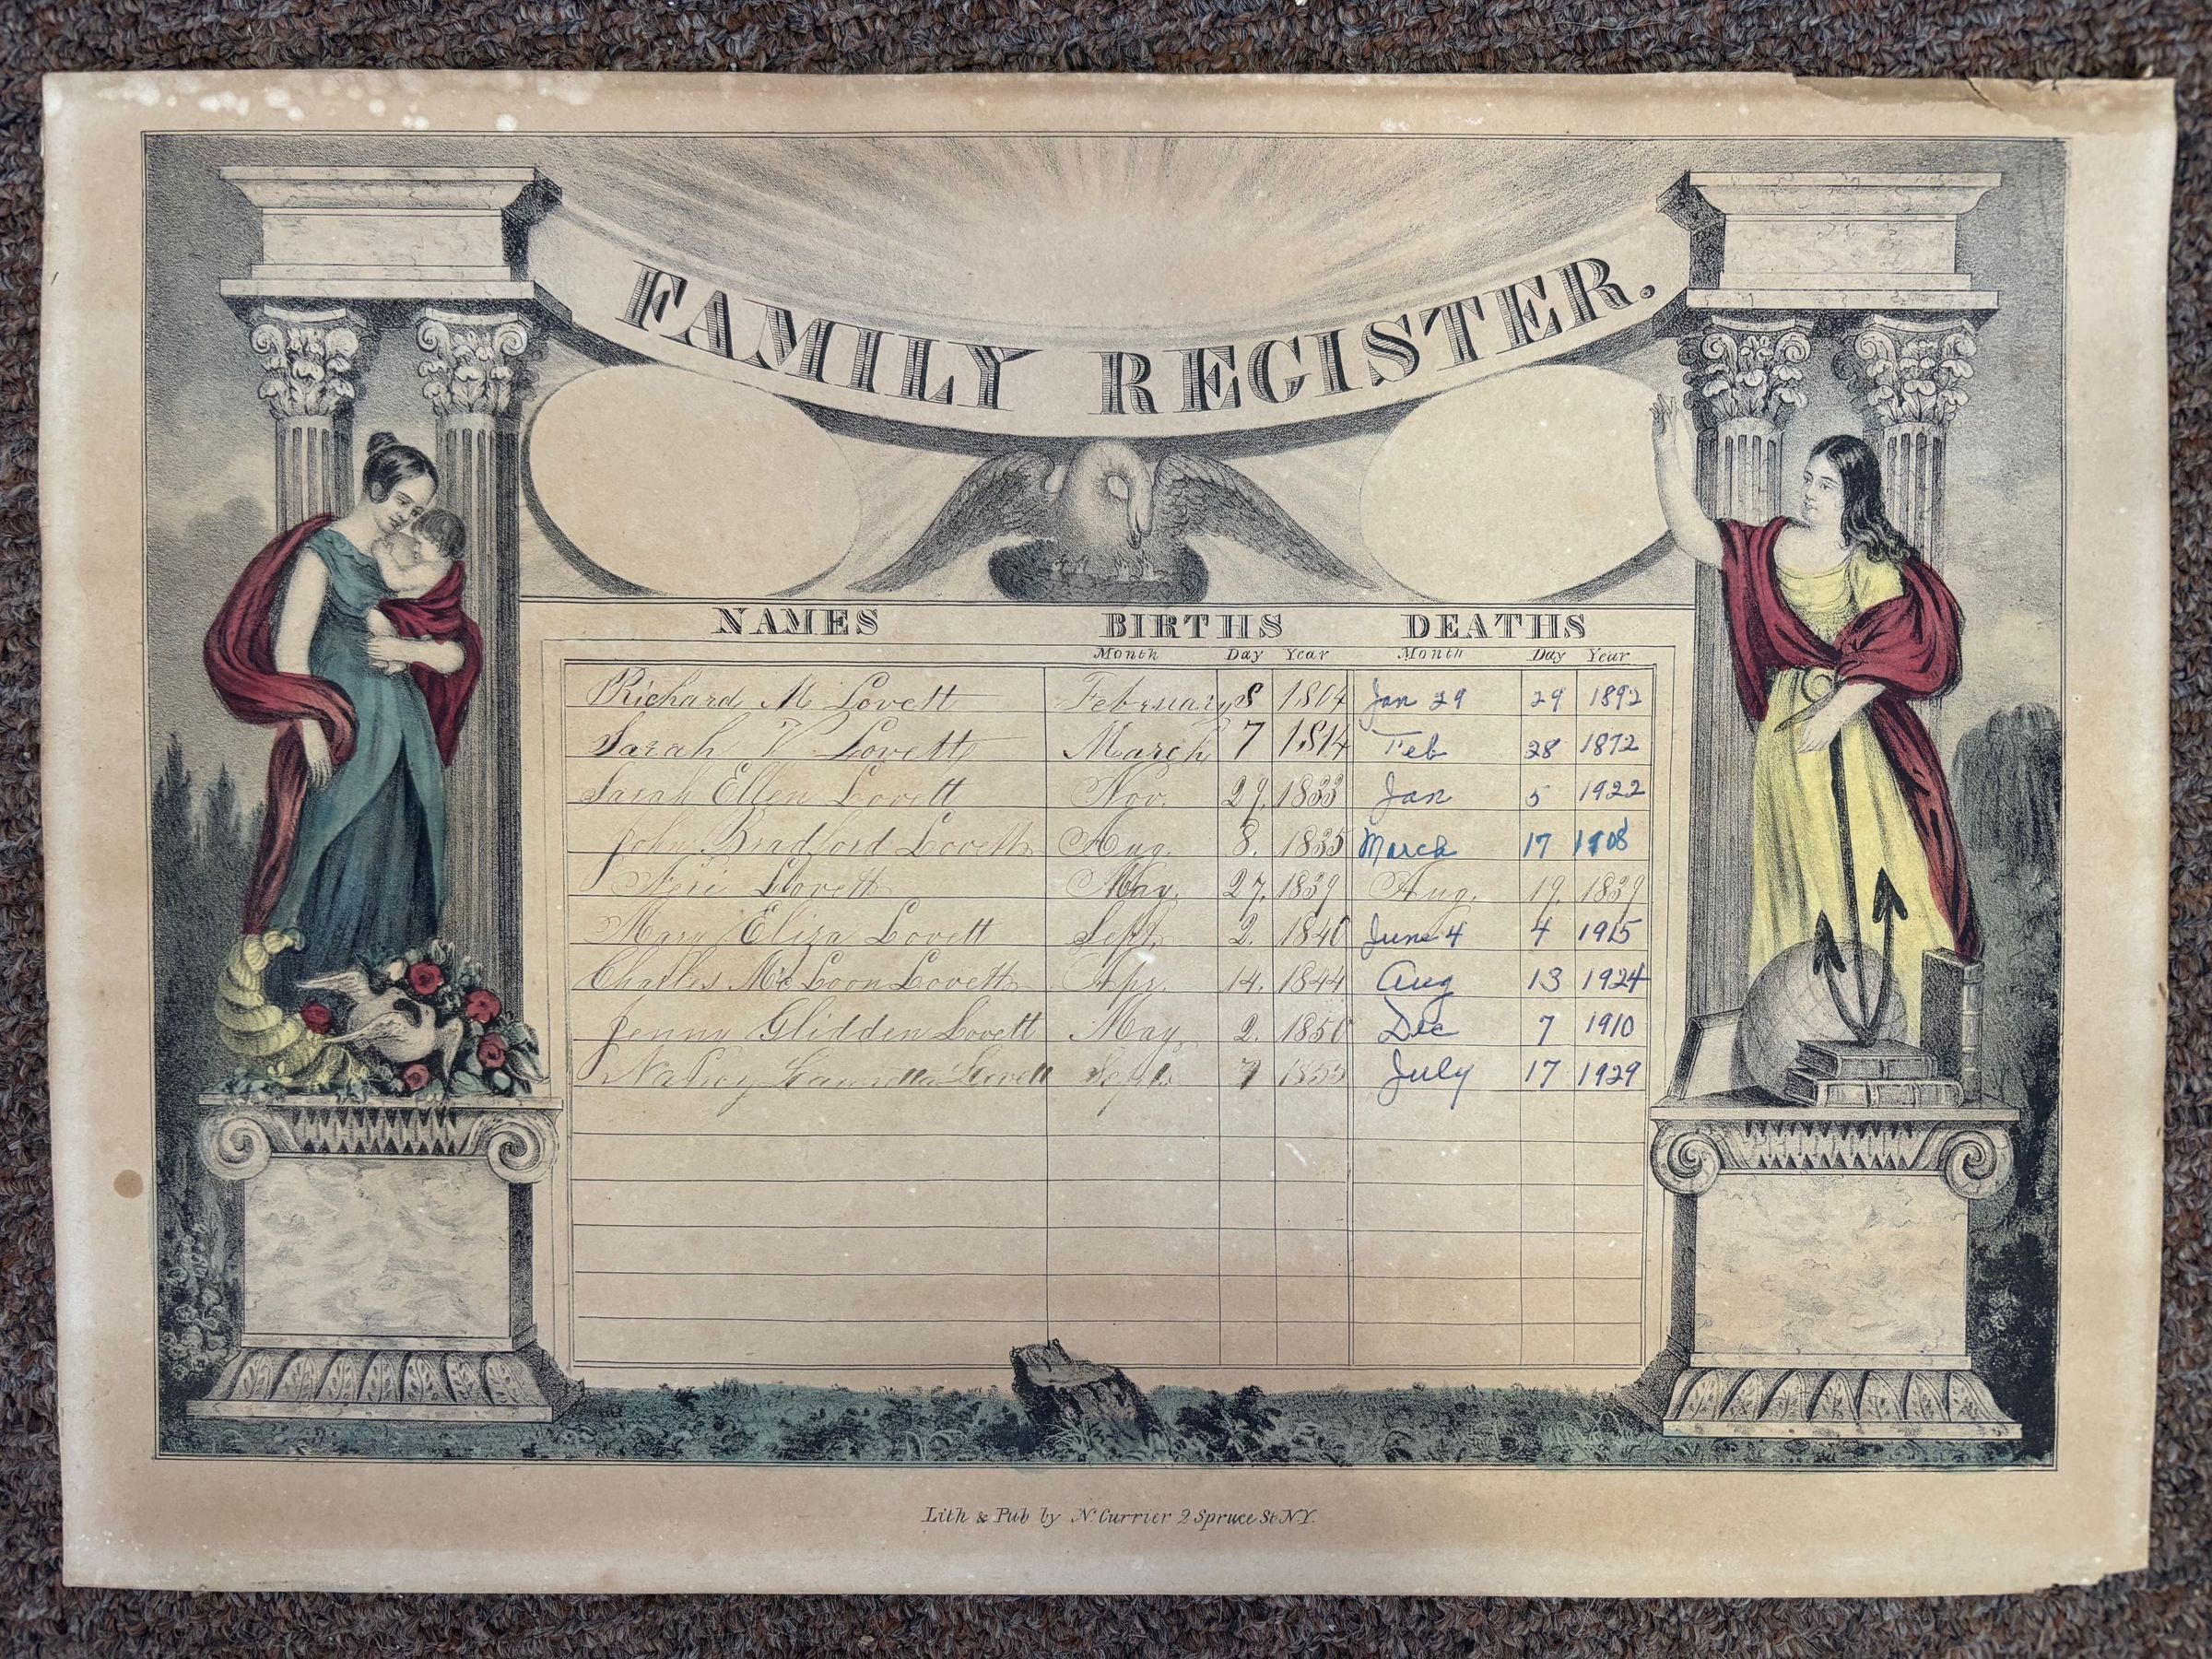 FAMILY REGISTER.
NAMES BIRTHS DEATHS
Month Day Year Month Day Year
Richard M Lovett February 8 1804 Jan 29 29 1892
Sarah V Lovett March 7 1814 Feb 28 1872
Sarah Ellen Lovett Nov. 29. 1833 Jan 5 1922
John Bradford Lovett Aug. 8. 1835 March 17 1908
Neri Lovett May. 27. 1839 Aug. 19. 1839
Mary Eliza Lovett Sept. 2. 1840 June 4 4 1915
Charles Mc Loon Lovett Apr. 14. 1844 Aug 13 1924
Jenny Glidden Lovett May 2. 1850 Dec 7 1910
Nancy Lovett Sept. 7 July 17 1929
Lith & Pub by N. Currier 2 Spruce St N.Y.